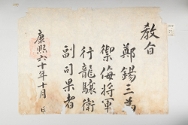 敎旨
鄭錫三爲
禦侮將軍
行龍驤衛
副司果者
康熙六十年十月 日